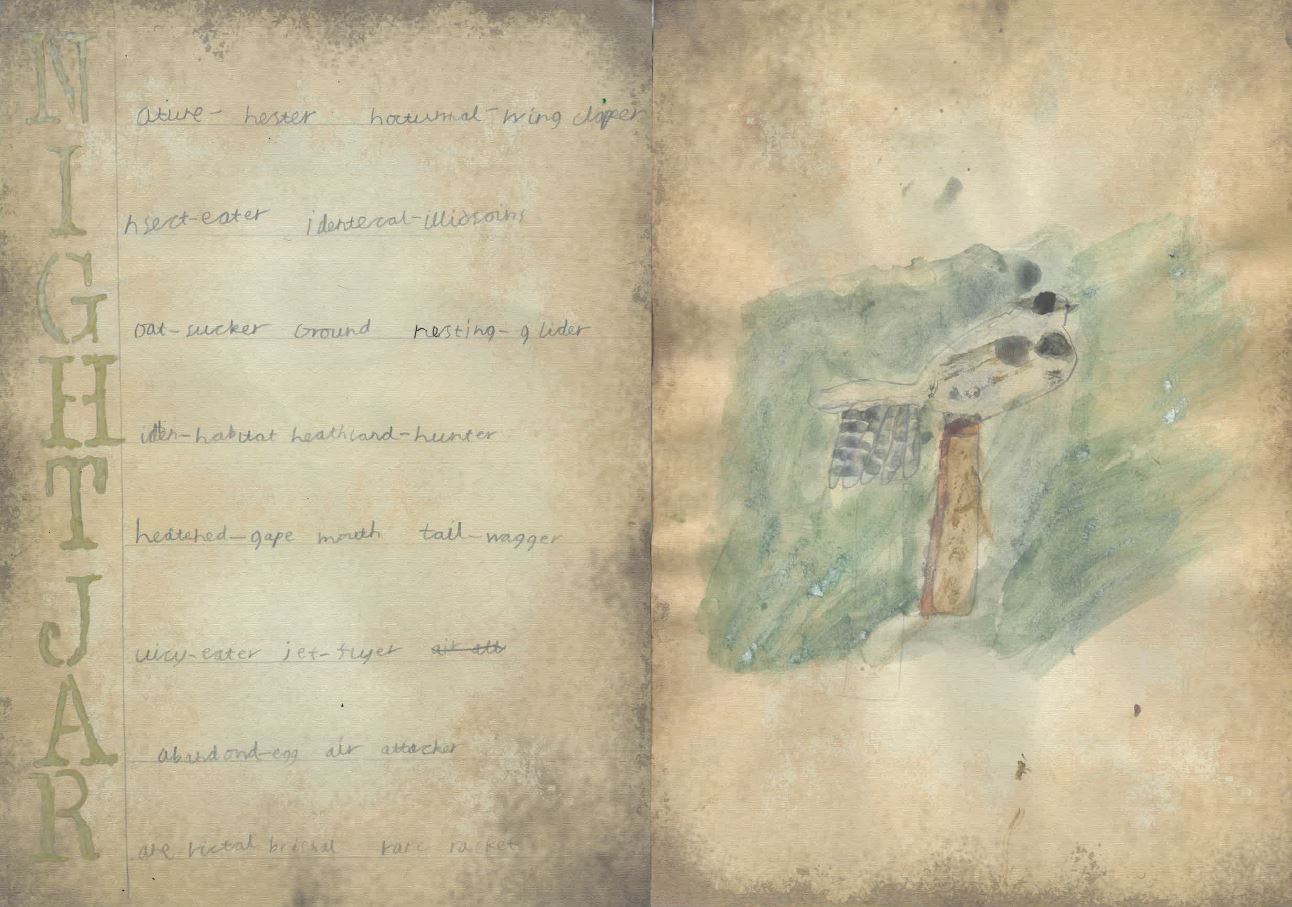 N ature- nester nocturnal-wing claper
I nsect-eater identecal-illidsoins
G oat-sucker Ground nesting-glider
H iden-habitat heathland-hunter
T heatched-gape mouth tail-wagger
J uicy-eater jet-flyer air att
A abandond-egg air attacher
R are rictal brissal rare racket